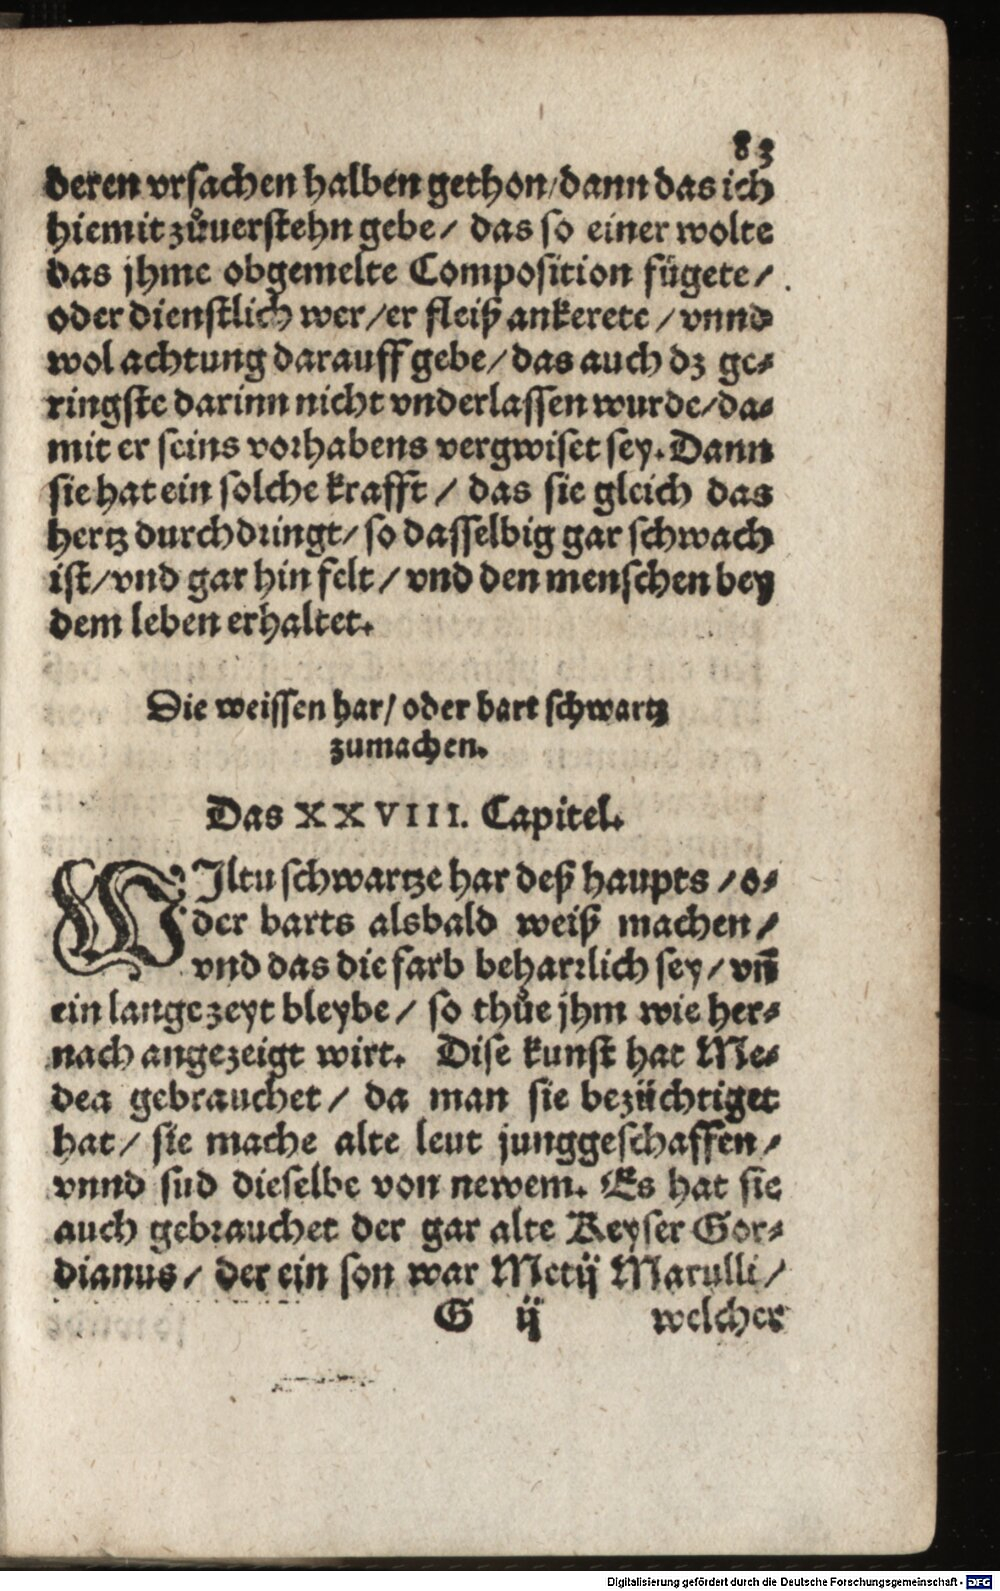 83
deren vrsachen halben gethon/dann das ich
hiemit zůuerstehn gebe/ das so einer wolte
das jhme obgemelte Composition fügete/
oder dienstlich wer/er fleiß ankerete/vnnd
wol achtung darauff gebe/das auch dz ge-
ringste darinn nicht vnderlassen wurde/da-
mit er seins vorhabens vergwiset sey. Dann
sie hat ein solche krafft/ das sie gleich das
hertz durchdringt/ so dasselbig gar schwach
ist/vnd gar hin felt/vnd den menschen bey
dem leben erhaltet.
Die weissen har/ oder bart schwartz
zumachen.
Das XXVIII. Capitel.
WIltu schwartze har deß haupts/o-
der barts alsbald weiß machen/
vnd das die farb beharrlich sey/vñ
ein lange zeyt bleybe/ so thůe jhm wie her-
nach angezeigt wirt. Dise kunst hat Me-
dea gebrauchet/ da man sie bezüchtiget
hat/ sie mache alte leut junggeschaffen/
vnnd sud dieselbe von newem. Es hat sie
auch gebrauchet der gar alte Keyser Gor-
dianus/ der ein son war Metij Marulli/
G ij welcher
Digitalisierung gefördert durch die Deutsche Forschungsgemeinschaft - DFG